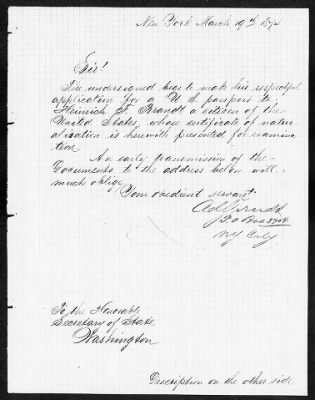 New York March 19th 1874
Sir!
The undersigned begs to make his respectful
application for a U S passport to
Heinrich F. Brandt a citizen of the
United States, whose certificate of natur
alisation is herewith presented for examina
tion.
An early transmission of the
Documents to the address below will
much oblige
Your obedient servant
P.O Box
N.Y City
To the Honorable
Secretary of State
Washington
Description on the other side